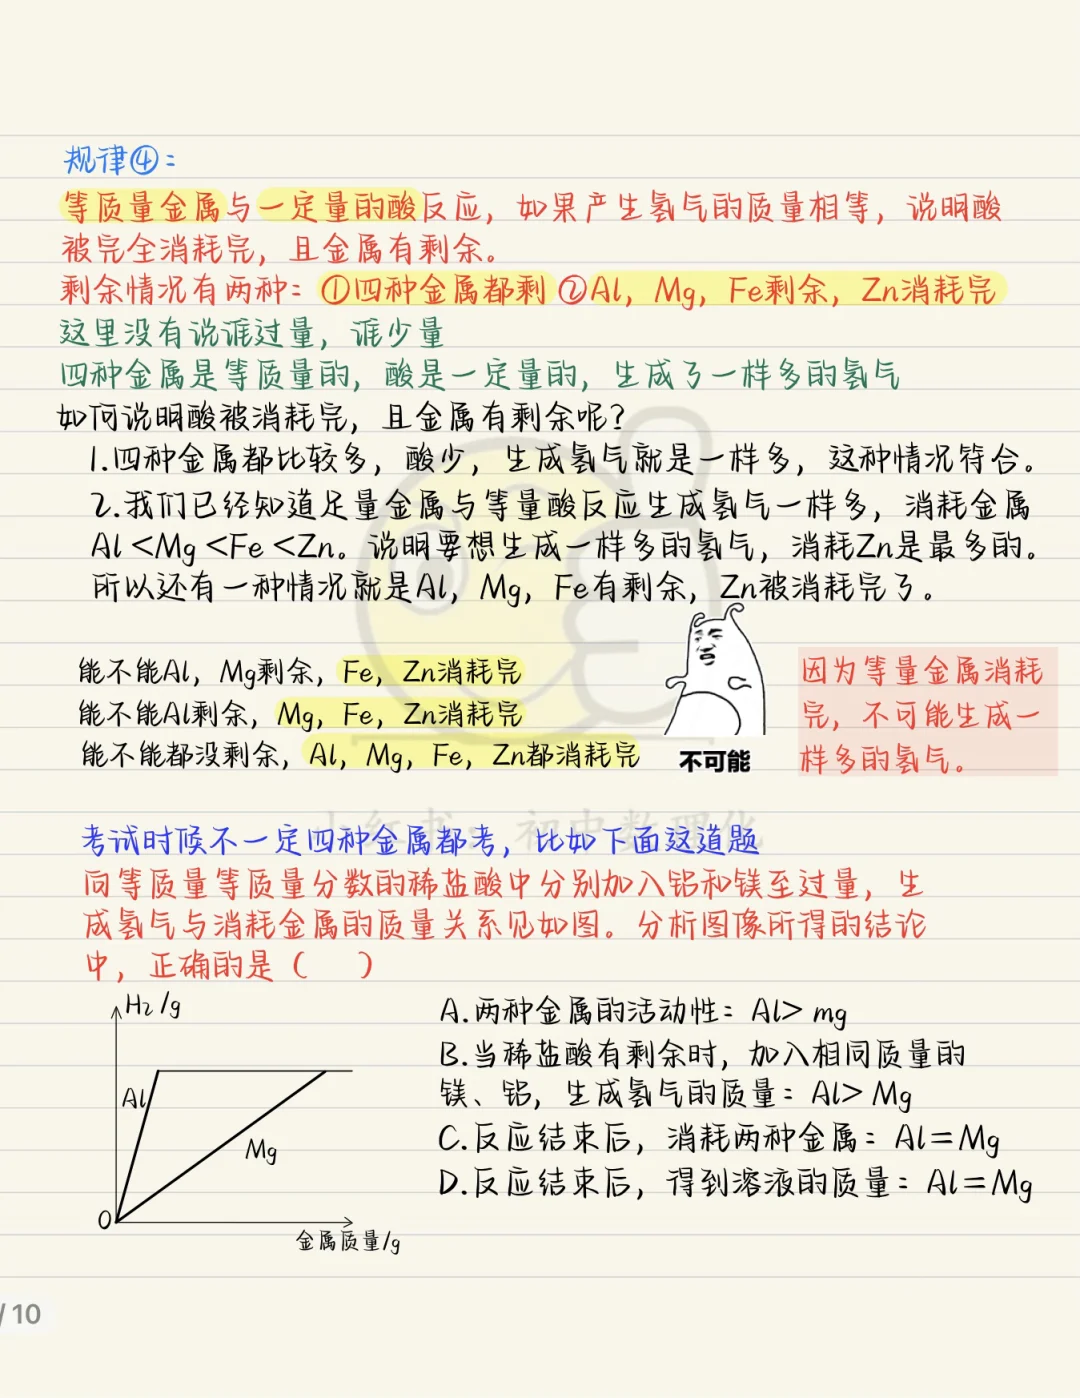 规律④：
等质量金属与一定量的酸反应，如果产生氢气的质量相等，说明酸
被完全消耗完，且金属有剩余。
剩余情况有两种：①四种金属都剩 ②Al，Mg，Fe剩余，Zn消耗完
这里没有说谁过量，谁少量
四种金属是等质量的，酸是一定量的，生成了一样多的氢气
如何说明酸被消耗完，且金属有剩余呢？
1.四种金属都比较多，酸少，生成氢气就是一样多，这种情况符合。
2.我们已经知道足量金属与等量酸反应生成氢气一样多，消耗金属
Al<Mg<Fe<Zn。说明要想生成一样多的氢气，消耗Zn是最多的。
所以还有一种情况就是Al，Mg，Fe有剩余，Zn被消耗完了。
能不能Al，Mg剩余，Fe，Zn消耗完
能不能Al剩余，Mg，Fe，Zn消耗完
能不能都没剩余，Al，Mg，Fe，Zn都消耗完
不可能
因为等量金属消耗
完，不可能生成一
样多的氢气。
小红书：初中数理化
考试时候不一定四种金属都考，比如下面这道题
向等质量等质量分数的稀盐酸中分别加入铝和镁至过量，生
成氢气与消耗金属的质量关系见如图。分析图像所得的结论
中，正确的是（ ）
H₂/g
Al
Mg
0
金属质量/g
A.两种金属的活动性：Al> mg
B.当稀盐酸有剩余时，加入相同质量的
镁、铝，生成氢气的质量：Al> Mg
C.反应结束后，消耗两种金属：Al=Mg
D.反应结束后，得到溶液的质量：Al=Mg
/10